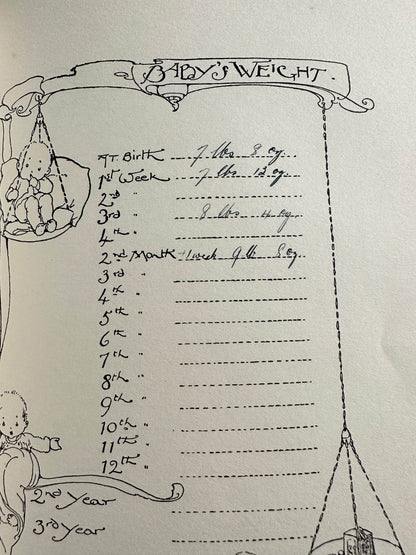 BABY'S WEIGHT.
AT BIRTH 7 lbs 8 oz.
1ST WEEK 7 lbs 12 oz.
2nd "
3rd " 8 lbs 4 oz.
4th "
2nd MONTH + 1 week 9 lb 8 oz.
3rd "
4th "
5th "
6th "
7th "
8th "
9th "
10th "
11th "
12th "
2nd YEAR
3rd YEAR